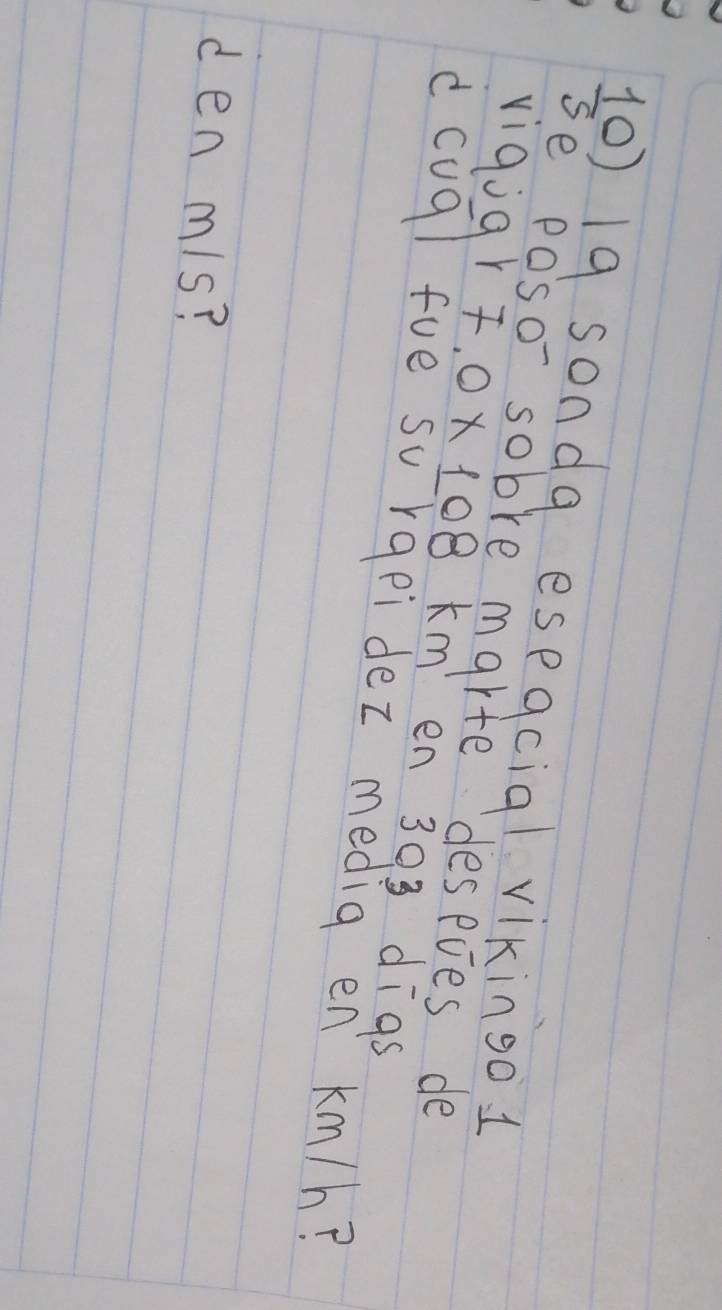 10) la sonda espacial vikingo 1
se posó sobre marte despúes de
viajar 7.0x108 km en 303 días
d cual fue su rapidez media en km/h?
d en m/s?